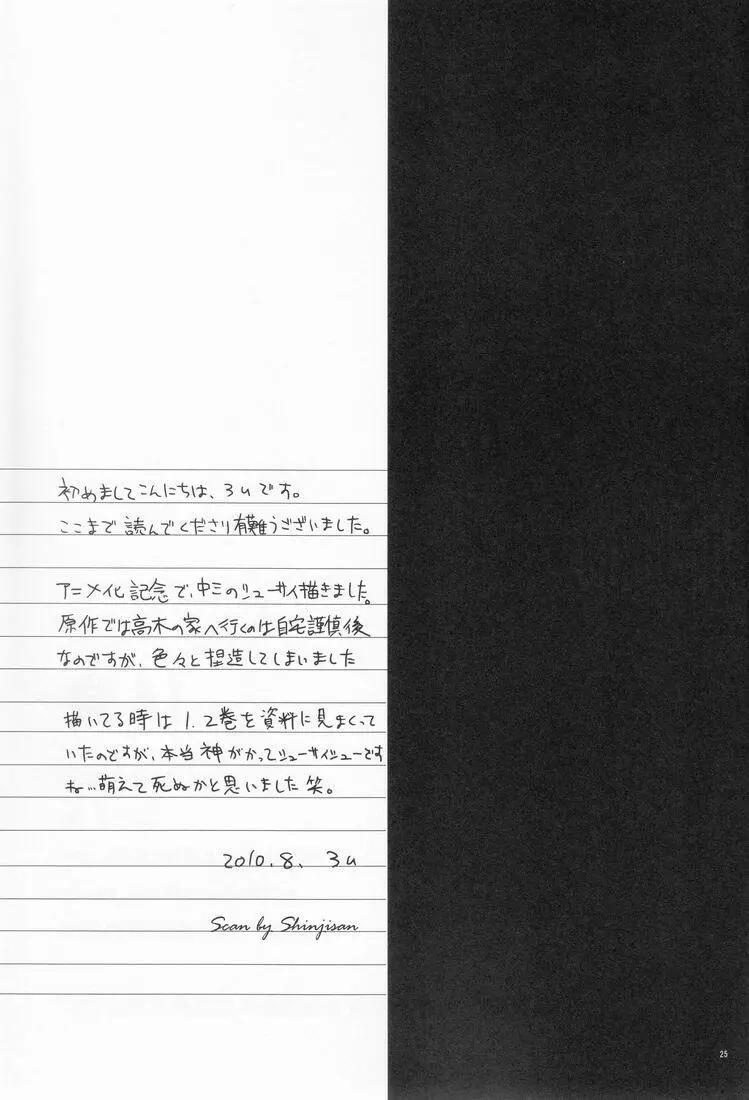 初めましてこんにちは、3uです。
ここまで読んでくださり有難うございました。
アニメ化記念で、中三のシューサイ描きました。
原作では高木の家へ行くのは自宅謹慎後
なのですが、色々と捏造してしまいました
描いてる時は1.2巻を資料に見まくって
いたのですが、本当神がかってシューサイシューです
ね…萌えて死ぬかと思いました笑。
2010.8、3u
Scan by Shinjisan
25